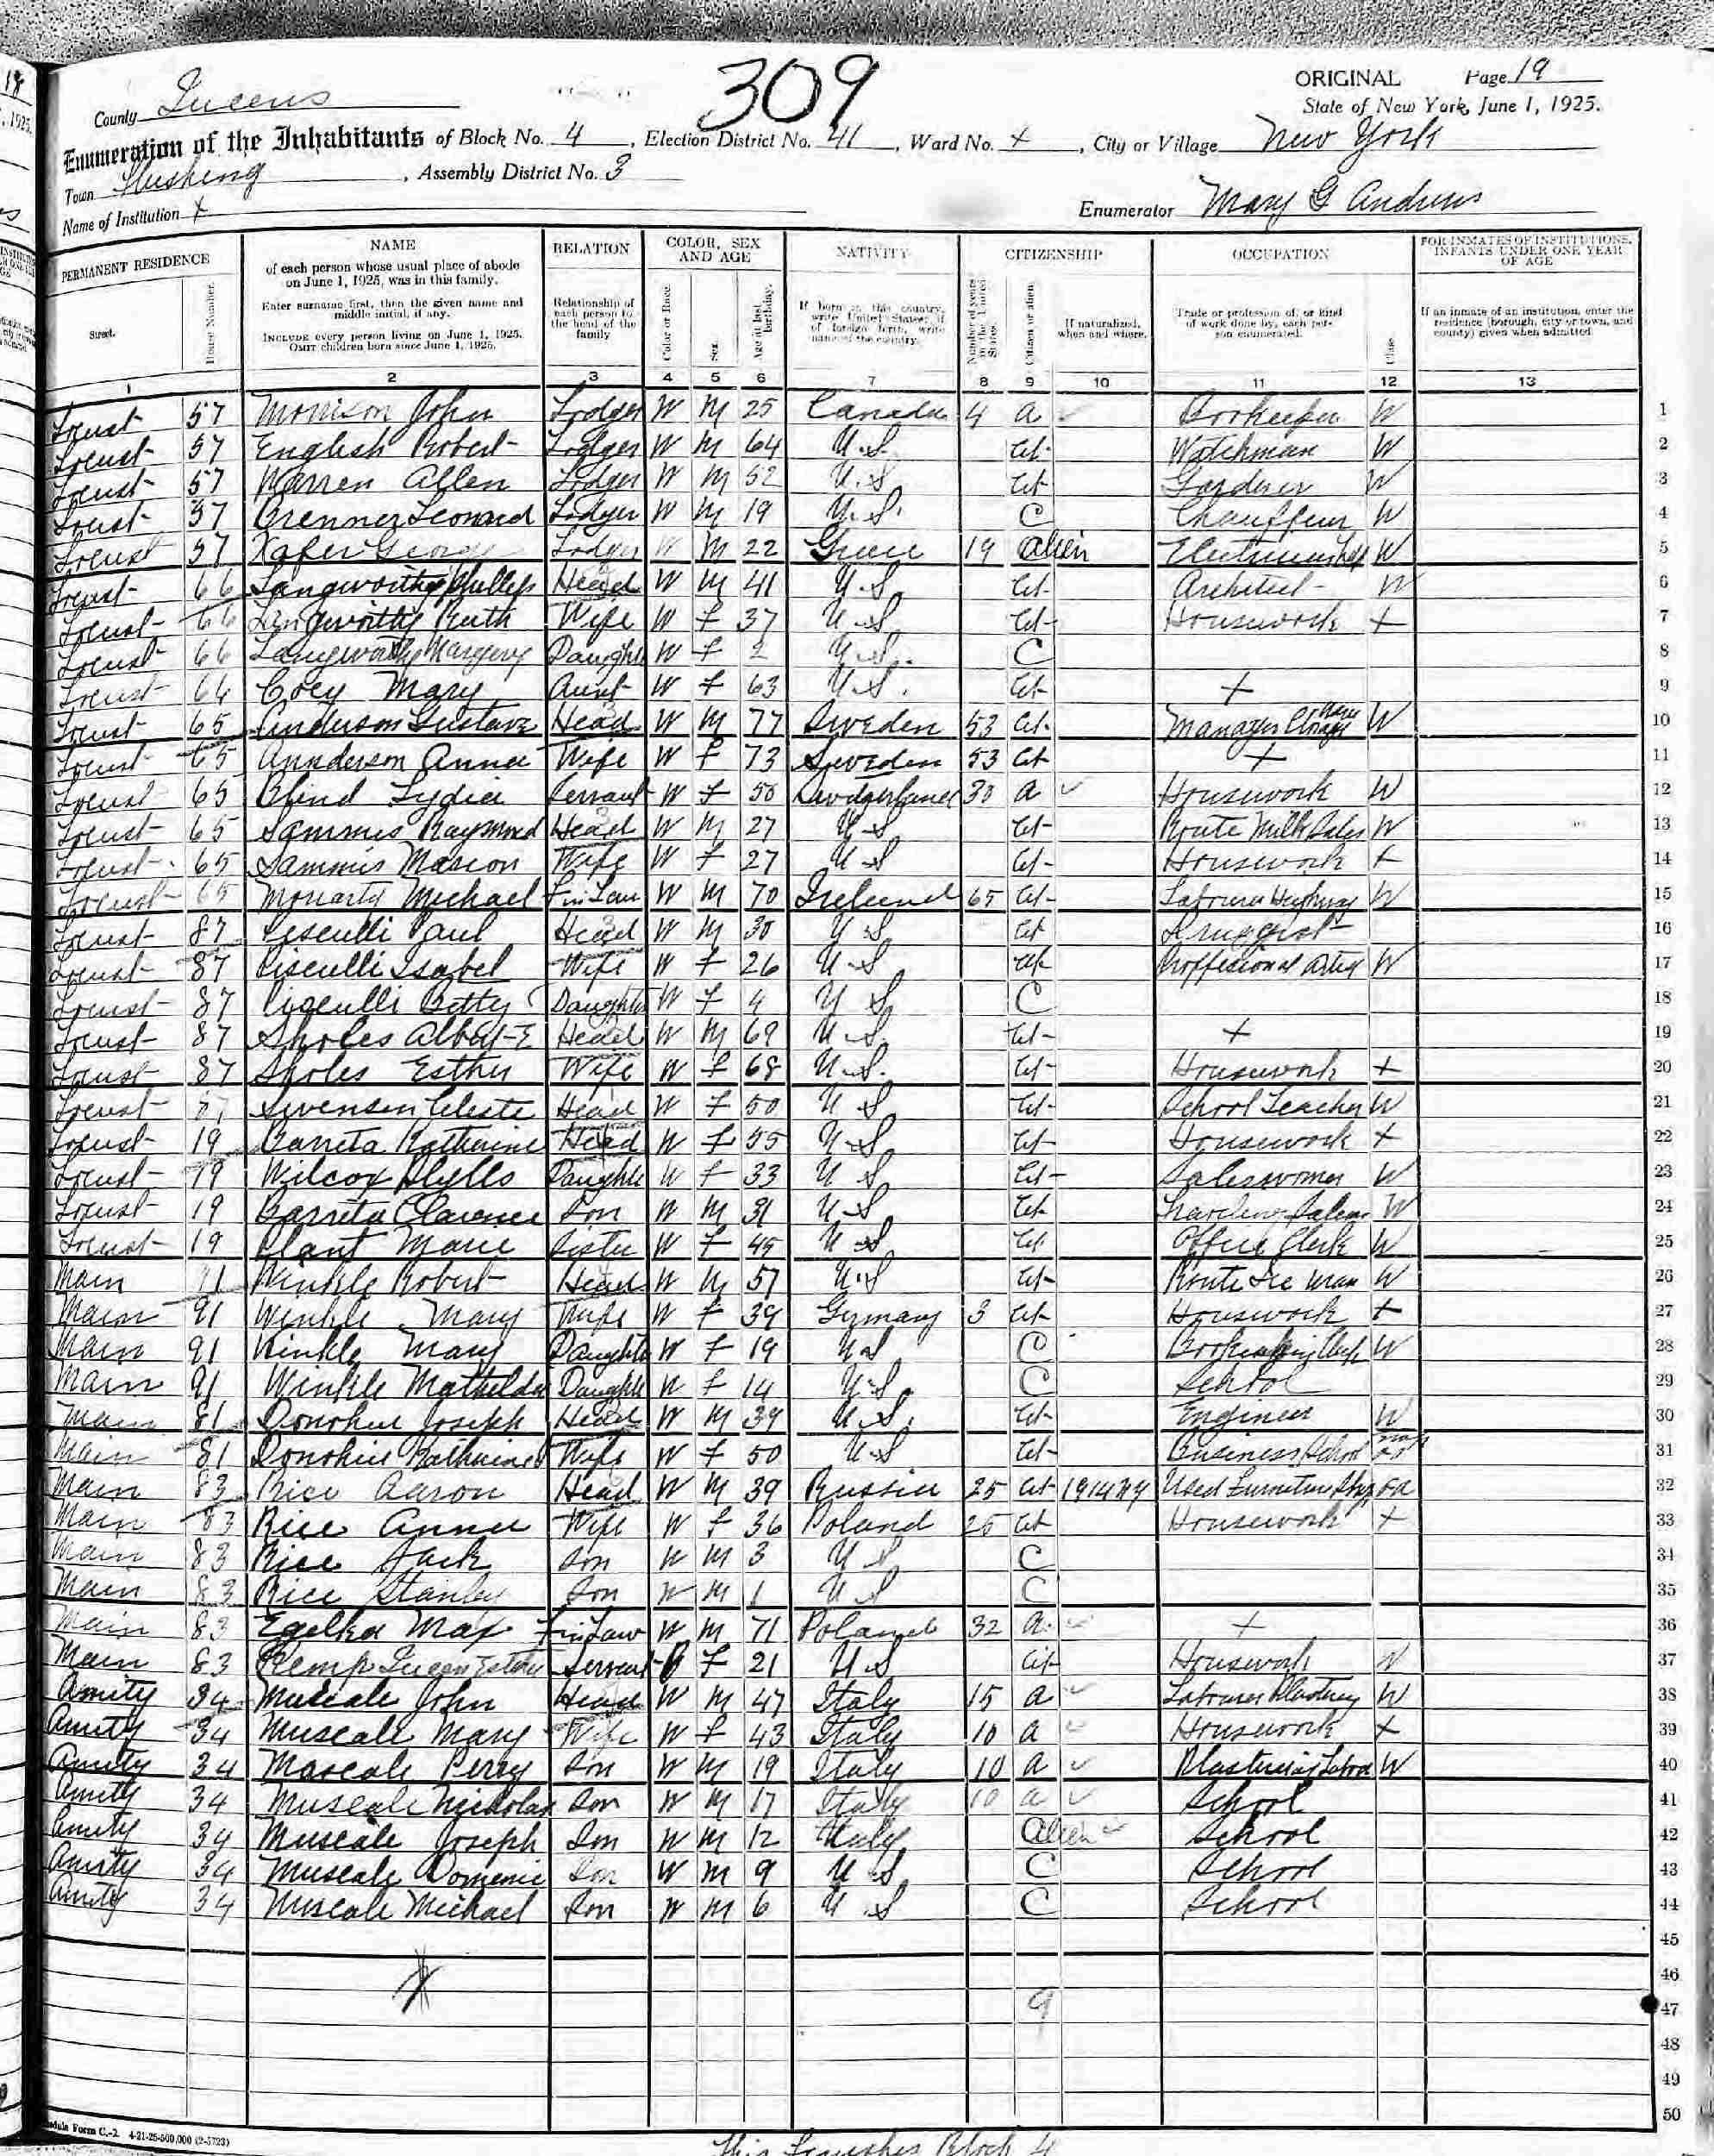 309
ORIGINAL Page 19
County Queens
State of New York, June 1, 1925.
Enumeration of the Inhabitants of Block No. 4, Election District No. 41, Ward No. +, City or Village New York
Town Flushing, Assembly District No. 3
Name of Institution + Enumerator Mary G Andrews
PERMANENT RESIDENCE
Street.
House Number.
1
NAME
of each person whose usual place of abode on June 1, 1925, was in this family.
Enter surname first, then the given name and middle initial, if any.
INCLUDE every person living on June 1, 1925.
OMIT children born since June 1, 1925.
2
RELATION
Relationship of each person to the head of the family
3
COLOR, SEX AND AGE
Color or Race.
4
Sex.
5
Age at last birthday.
6
NATIVITY
If born in this country, write United States; if of foreign birth, write name of the country.
7
CITIZENSHIP
Number of years in the United States.
8
Citizen or alien.
9
If naturalized, when and where.
10
OCCUPATION
Trade or profession of, or kind of work done by, each person enumerated.
11
Class.
12
FOR INMATES OF INSTITUTIONS, INFANTS UNDER ONE YEAR OF AGE
If an inmate of an institution, enter the residence (borough, city or town, and county) given when admitted
13
Locust 57 Morrison John Lodger W M 25 Canada 4 a Bookeeper W 1
Locust 57 English Robert Lodger W M 64 U.S. Cit Watchman W 2
Locust 57 Warren Allen Lodger W M 52 U.S Cit Gardener W 3
Locust 57 Brenner Leonard Lodger W M 19 U.S. C Chauffeur W 4
Locust 57 George Lodger W M 22 Greece 19 Alien W 5
Locust 66 Langworthy Head W M 41 U.S. Cit Architect W 6
Locust 66 Langworthy Ruth Wife W F 37 U.S Cit Housework + 7
Locust 66 Langworthy Margery Daughte W F 2 U.S. C 8
Locust 66 Coey Mary Aunt W F 63 U.S. Cit + 9
Locust 65 Anderson Gustave Head W M 77 Sweden 53 Cit Manager W 10
Locust 65 Annderson Anna Wife W F 73 Sweden 53 Cit + 11
Locust 65 Blind Lydia Servant W F 50 30 a Housework W 12
Locust 65 Sammis Raymond Head W M 27 U S Cit Route Milk Sales W 13
Locust 65 Sammis Marion Wife W F 27 U S Cit Housework + 14
Locust 65 Moriarty Michael F in Law W M 70 Ireland 65 Cit Laborer Highway W 15
Locust 87 Paul Head W M 30 U S Cit Druggist 16
Locust 87 Isabel Wife W F 26 U S Cit W 17
Locust 87 Betty Daughte W F 4 U S C 18
Locust 87 Sholes Albert E Head W M 69 U.S. Cit + 19
Locust 87 Sholes Esther Wife W F 68 U.S. Cit Housework + 20
Locust 87 Swensen Celeste Head W F 50 U S Cit School Teacher W 21
Locust 19 Katherine Head W F 55 U S Cit Housework + 22
Locust 19 Wilcox Daughte W F 33 U S Cit Saleswoman W 23
Locust 19 Clarence Son W M 31 U S Cit W 24
Locust 19 Plant Marie Sister W F 45 U S Cit Office Clerk W 25
Main 91 Winkle Robert Head W M 57 U.S Cit Route Ice Man W 26
Main 91 Winkle Mary Wife W F 39 Germany 3 Cit Housework + 27
Main 91 Winkle Mary Daughte W F 19 U S C W 28
Main 91 Winkle Mathilda Daughte W F 14 U.S. C School 29
Main 81 Donohue Joseph Head W M 39 U.S. Cit Engineer W 30
Main 81 Donohue Katherine Wife W F 50 U.S Cit Business School 31
Main 83 Rice Aaron Head W M 39 Russia 25 Cit 1914 NY Used Furniture Shop OA 32
Main 83 Rice Anna Wife W F 36 Poland 25 Cit Housework + 33
Main 83 Rice Jack Son W M 3 U S C 34
Main 83 Rice Stanley Son W M 1 U S C 35
Main 83 Max F in Law W M 71 Poland 32 a + 36
Main 83 Kemp Servant F 21 U S Cit Housework W 37
Amity 34 Muscale John Head W M 47 Italy 15 a Laborer Plastering W 38
Amity 34 Muscale Mary Wife W F 43 Italy 10 a Housework + 39
Amity 34 Mascale Perry Son W M 19 Italy 10 a Plastering Labor W 40
Amity 34 Muscale Nicholas Son W M 17 Italy 10 a School 41
Amity 34 Muscale Joseph Son W M 12 Italy Alien School 42
Amity 34 Muscale Domenic Son W M 9 U S C School 43
Amity 34 Muscale Michael Son W M 6 U S C School 44
45
46
9 47
48
49
50
Form C.-2. 4-21-25-500,000 (2-5723)
This Finishes Block 4